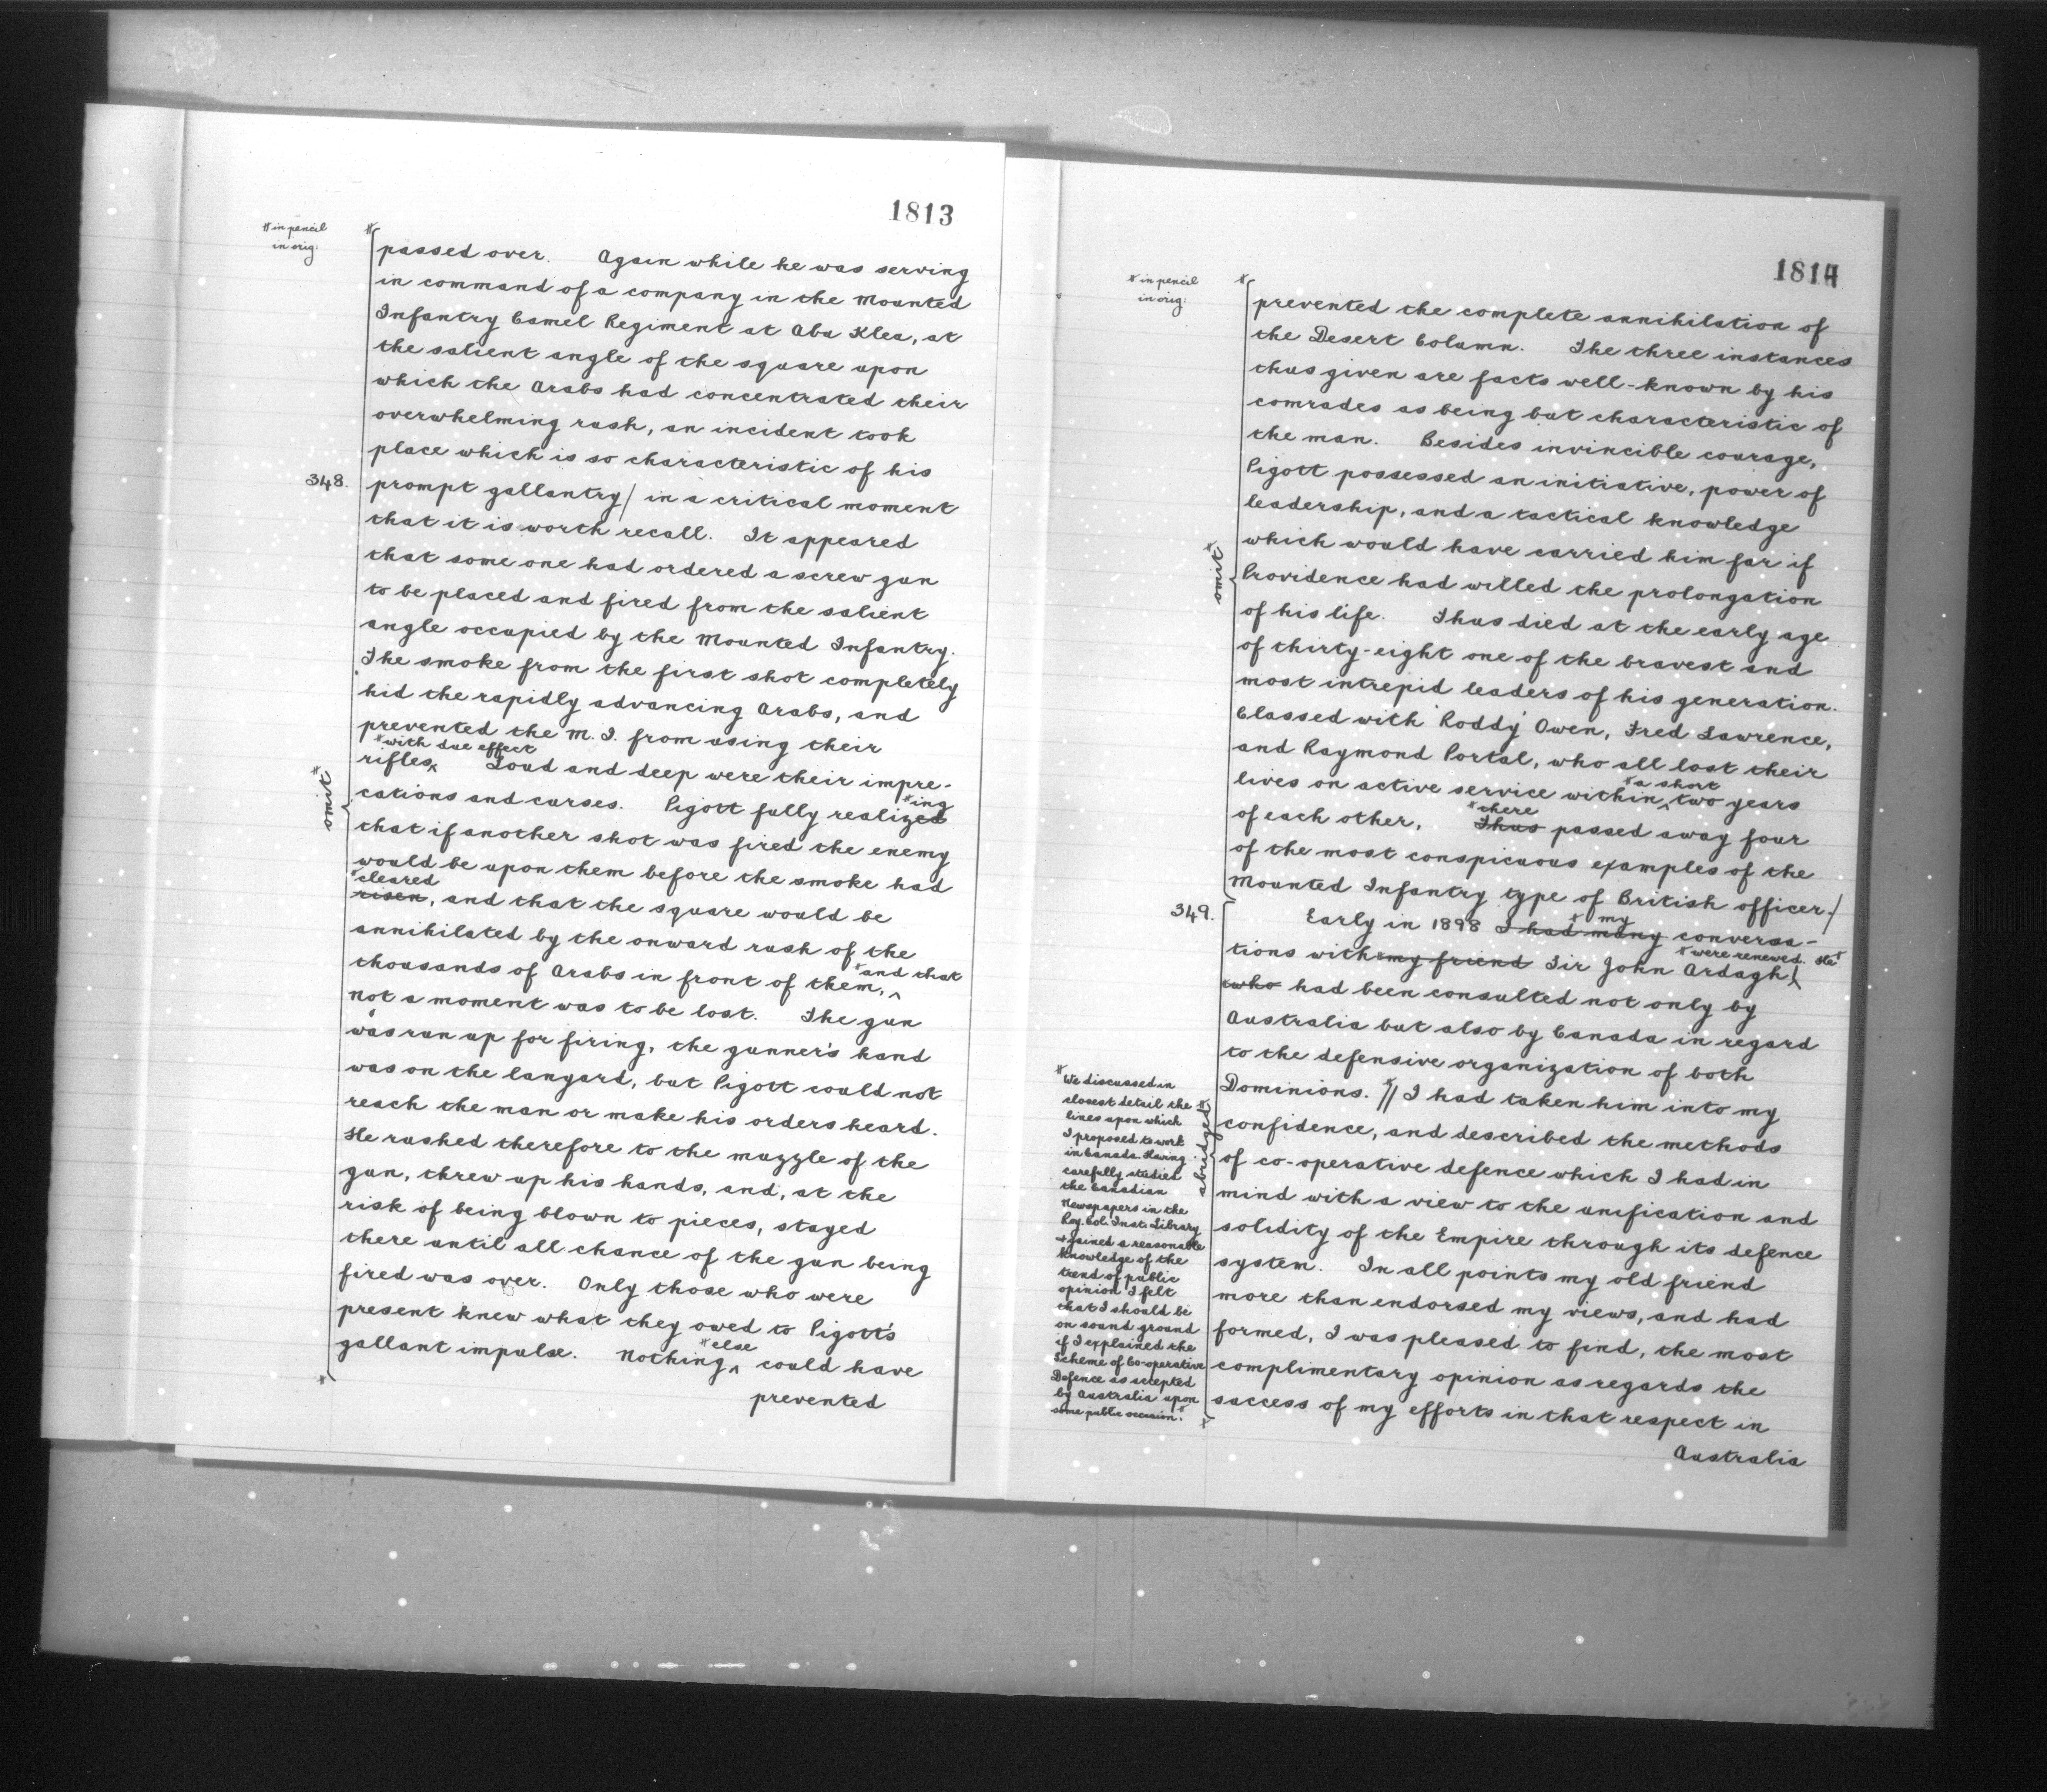 1813
* in pencil
in orig:
passed over. Again while he was serving
in command of a company in the Mounted
Infantry Camel Regiment at Abu Klea, at
the salient angle of the square upon
which the Arabs had concentrated their
overwhelming rush, an incident took
place which is so characteristic of his
348.
prompt gallantry/ in a critical moment
that it is worth recall. It appeared
that some one had ordered a screw gun
to be placed and fired from the salient
angle occupied by the Mounted Infantry.
The smoke from the first shot completely
hid the rapidly advancing Arabs, and
prevented the M. I. from using their
* with due effect
rifles‸ Loud and deep were their impre-
omit*
cations and curses. Pigott fully realized *ing
that if another shot was fired the enemy
would be upon them before the smoke had
*cleared
risen, and that the square would be
annihilated by the onward rush of the
thousands of Arabs in front of them, ‸ *and that
not a moment was to be lost. The gun
was run up for firing, the gunner's hand
was on the lanyard, but Pigott could not
reach the man or make his orders heard.
He rushed therefore to the muzzle of the
gun, threw up his hands, and, at the
risk of being blown to pieces, stayed
there until all chance of the gun being
fired was over. Only those who were
present knew what they owed to Pigott's
gallant impulse. Nothing ‸ *else could have
prevented
1814
* in pencil
in orig:
prevented the complete annihilation of
the Desert Column. The three instances
thus given are facts well-known by his
comrades as being but characteristic of
the man. Besides invincible courage,
Pigott possessed an initiative, power of
leadership, and a tactical knowledge
which would have carried him far if
omit*
Providence had willed the prolongation
of his life. Thus died at the early age
of thirty-eight one of the bravest and
most intrepid leaders of his generation.
Classed with 'Roddy' Owen, Fred Lawrence,
and Raymond Portal, who all lost their
lives on active service within ‸ *a short two years
of each other, Thus *there passed away four
of the most conspicuous examples of the
Mounted Infantry type of British officer./
349.
Early in 1898 I had many *my conversa-
tions with my friend Sir John Ardagh ‸ *were renewed. He*
who had been consulted not only by
Australia but also by Canada in regard
to the defensive organization of both
Dominions. *// I had taken him into my
confidence, and described the methods
of co-operative defence which I had in
mind with a view to the unification and
solidity of the Empire through its defence
system. In all points my old friend
more than endorsed my views, and had
formed, I was pleased to find, the most
complimentary opinion as regards the
success of my efforts in that respect in
Australia
abridged*
*We discussed in
closest detail the
lines upon which
I proposed to work
in Canada. Having
carefully studied
the Canadian
Newspapers in the
Roy. Col. Inst: Library
+ gained a reasonable
knowledge of the
trend of public
opinion I felt
that I should be
on sound ground
if I explained the
Scheme of Co-operative
Defence as accepted
by Australia upon
some public occasion.*